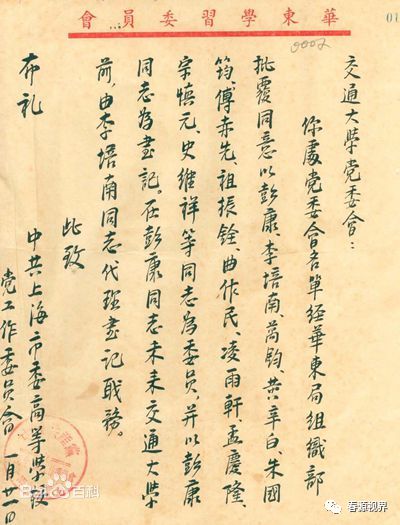 華東學習委員會
0002
01
交通大學党委會：
你處党委會名單經華東局組織部
批覆同意以彭康、李培南、萬鈞、黄辛白、朱國
筠、傅赤先、祖振銓、曲作民、凌雨軒、孟慶隆、
宗慎元、史維祥等同志為委員，并以彭康
同志為書記。在彭康同志未来交通大學
前，由李培南同志代理書記職務。
此致
布礼
中共上海市委高等學校
党工作委員會 一月廿一日
百科
春源视界